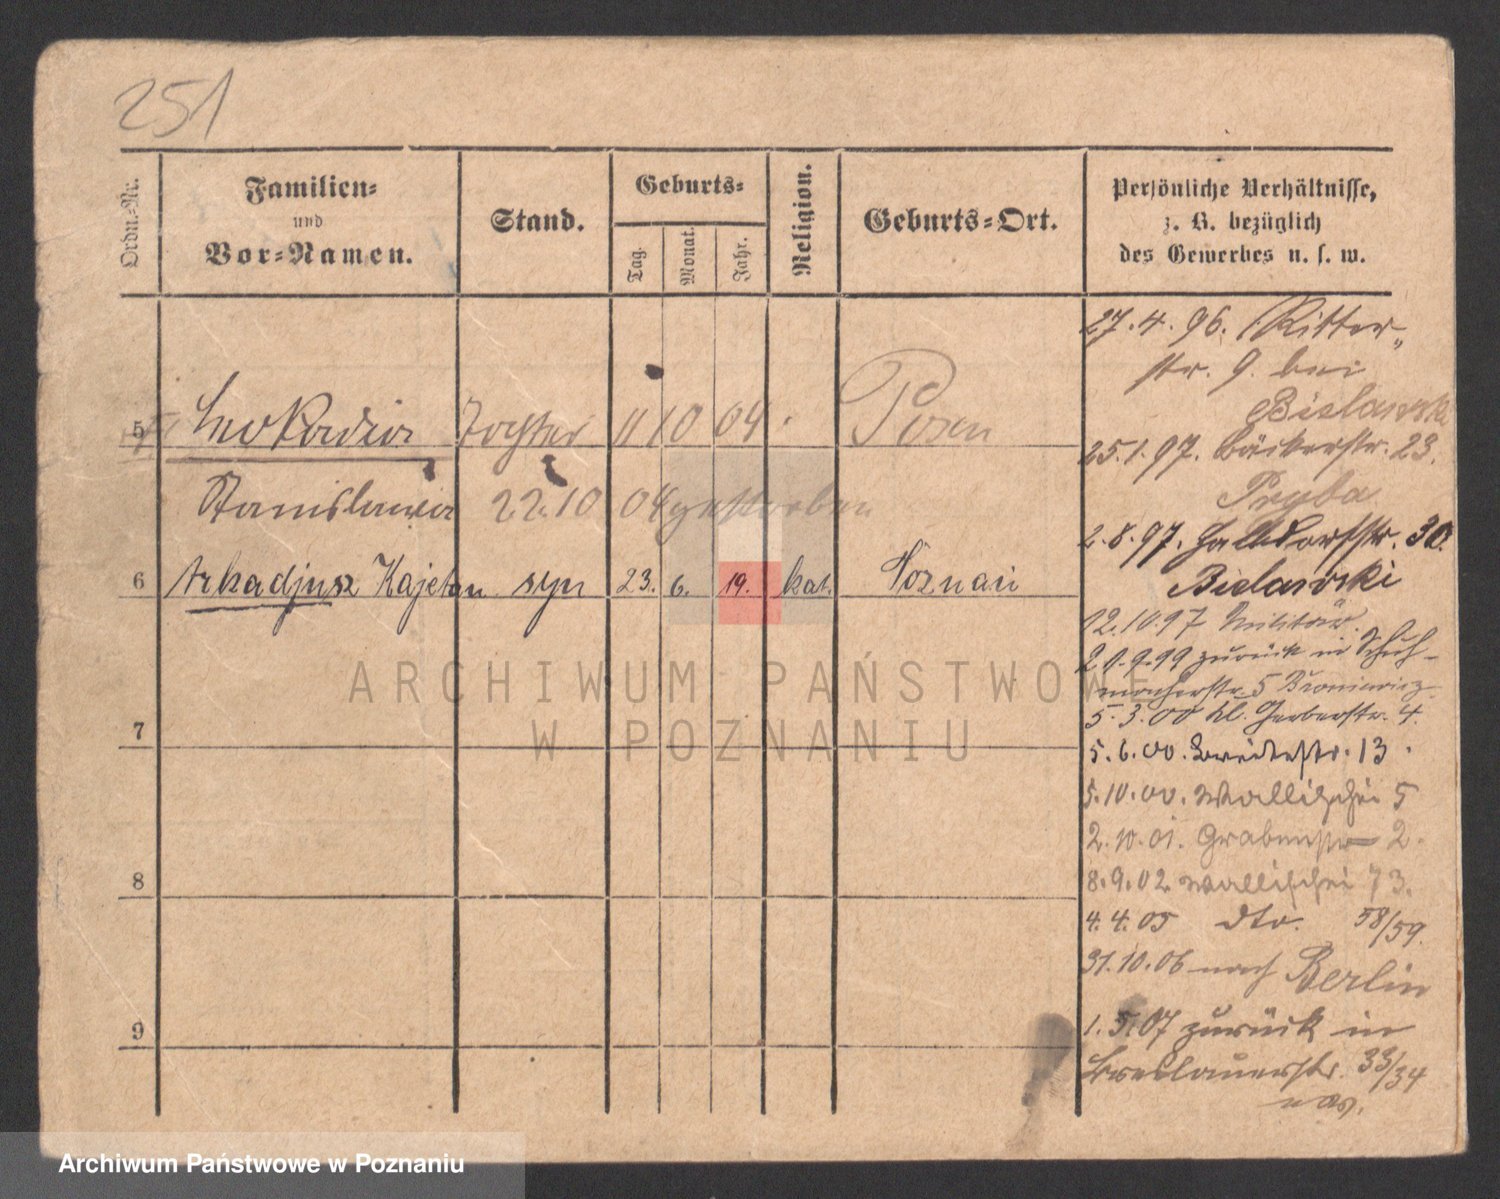 251
Ordn.-Nr.
Familien-
und
Vor-Namen.
Stand.
Geburts-
Tag.
Monat.
Jahr.
Religion.
Geburts-Ort.
Persönliche Verhältnisse,
z. B. bezüglich
des Gewerbes u. s. w.
5 Leokadia Tochter 11 10 04 Posen
Stanislawa 22.10 04 gestorben
6 Arkadjusz Kajetan syn 23. 6. 19. kat. Poznań
7
8
9
27.4.96. Ritter-
str. 9. bei
Bielawski
25.1.97. Bäckerstr. 23.
Pryba
2.8.97. Halbdorfstr. 30.
Bielawski
12.10.97 Militär.
20.9.99 zurück in Schuh-
macherstr. 5 Broniewicz.
5.3.00 Kl. Gerberstr. 4.
5.6.00. Breitestr. 13.
5.10.00. Wallischei 5
2.10.01. Grabenstr 2.
8.9.02. Wallischei 73.
4.4.05 dto. 58/59.
31.10.06 nach Berlin
1.5.07 zurück in
Breslauerstr. 33/34
ARCHIWUM PAŃSTWOWE
W POZNANIU
Archiwum Państwowe w Poznaniu